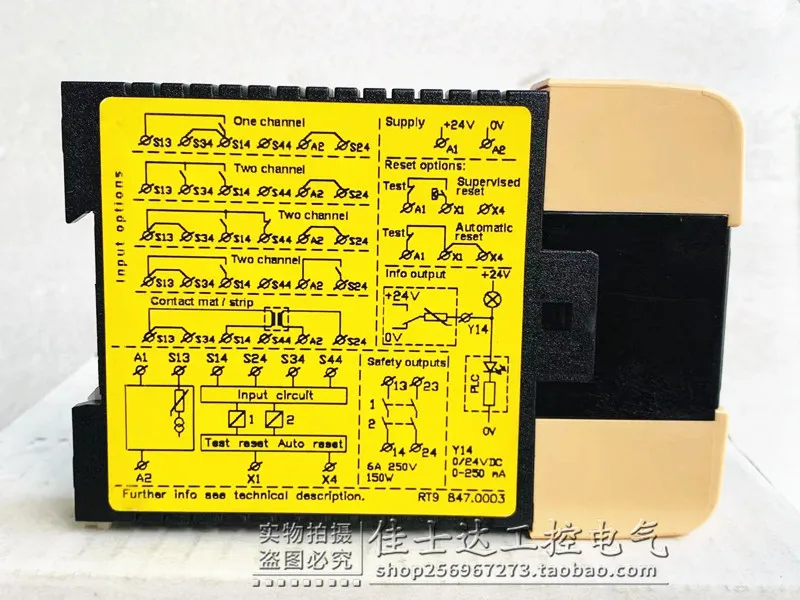 One channel
S13 S34 S14 S44 A2 S24
Two channel
S13 S34 S14 S44 A2 S24
Two channel
S13 S34 S14 S44 A2 S24
Two channel
S13 S34 S14 S44 A2 S24
Contact mat / strip
S13 S34 S14 S44 A2 S24
Input options
Supply +24V 0V
A1 A2
Reset options:
Test Supervised
reset
A1 X1 X4
Test Automatic
reset
A1 X1 X4
Info output +24V
+24V
0V
Y14
PLC
0V
A1 S13 S14 S24 S34 S44
Input circuit
1 2
Test reset Auto reset
A2 X1 X4
Safety outputs
13 23
1
2
14 24
6A 250V
150W
Y14
0/24VDC
0-250 mA
Further info see technical description. RT9 847.0003
实物拍摄
盗图必究
佳士达工控电气
shop256967273.taobao.com